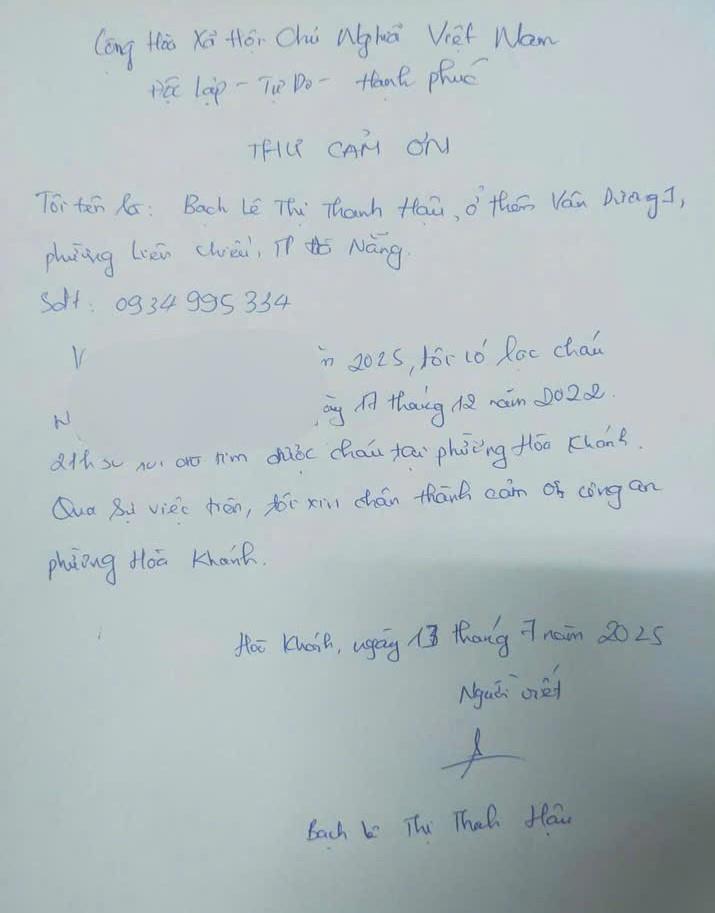 Cộng Hòa Xã Hội Chủ Nghĩa Việt Nam
Độc lập - Tự Do - Hạnh phúc
THƯ CẢM ƠN
Tôi tên là: Bạch Lê Thị Thanh Hậu, ở thôn Vân Dương 1,
phường Liên Chiểu, TP Đà Nẵng.
Sdt: 0934 995 334
V
2025, tôi có lạc cháu
N
17 tháng 12 năm 2022.
tìm được cháu tại phường Hòa Khánh.
Qua sự việc trên, tôi xin chân thành cảm ơn công an
phường Hòa Khánh.
Hòa Khánh, ngày 13 tháng 7 năm 2025
Người viết
Bạch Lê Thị Thanh Hậu